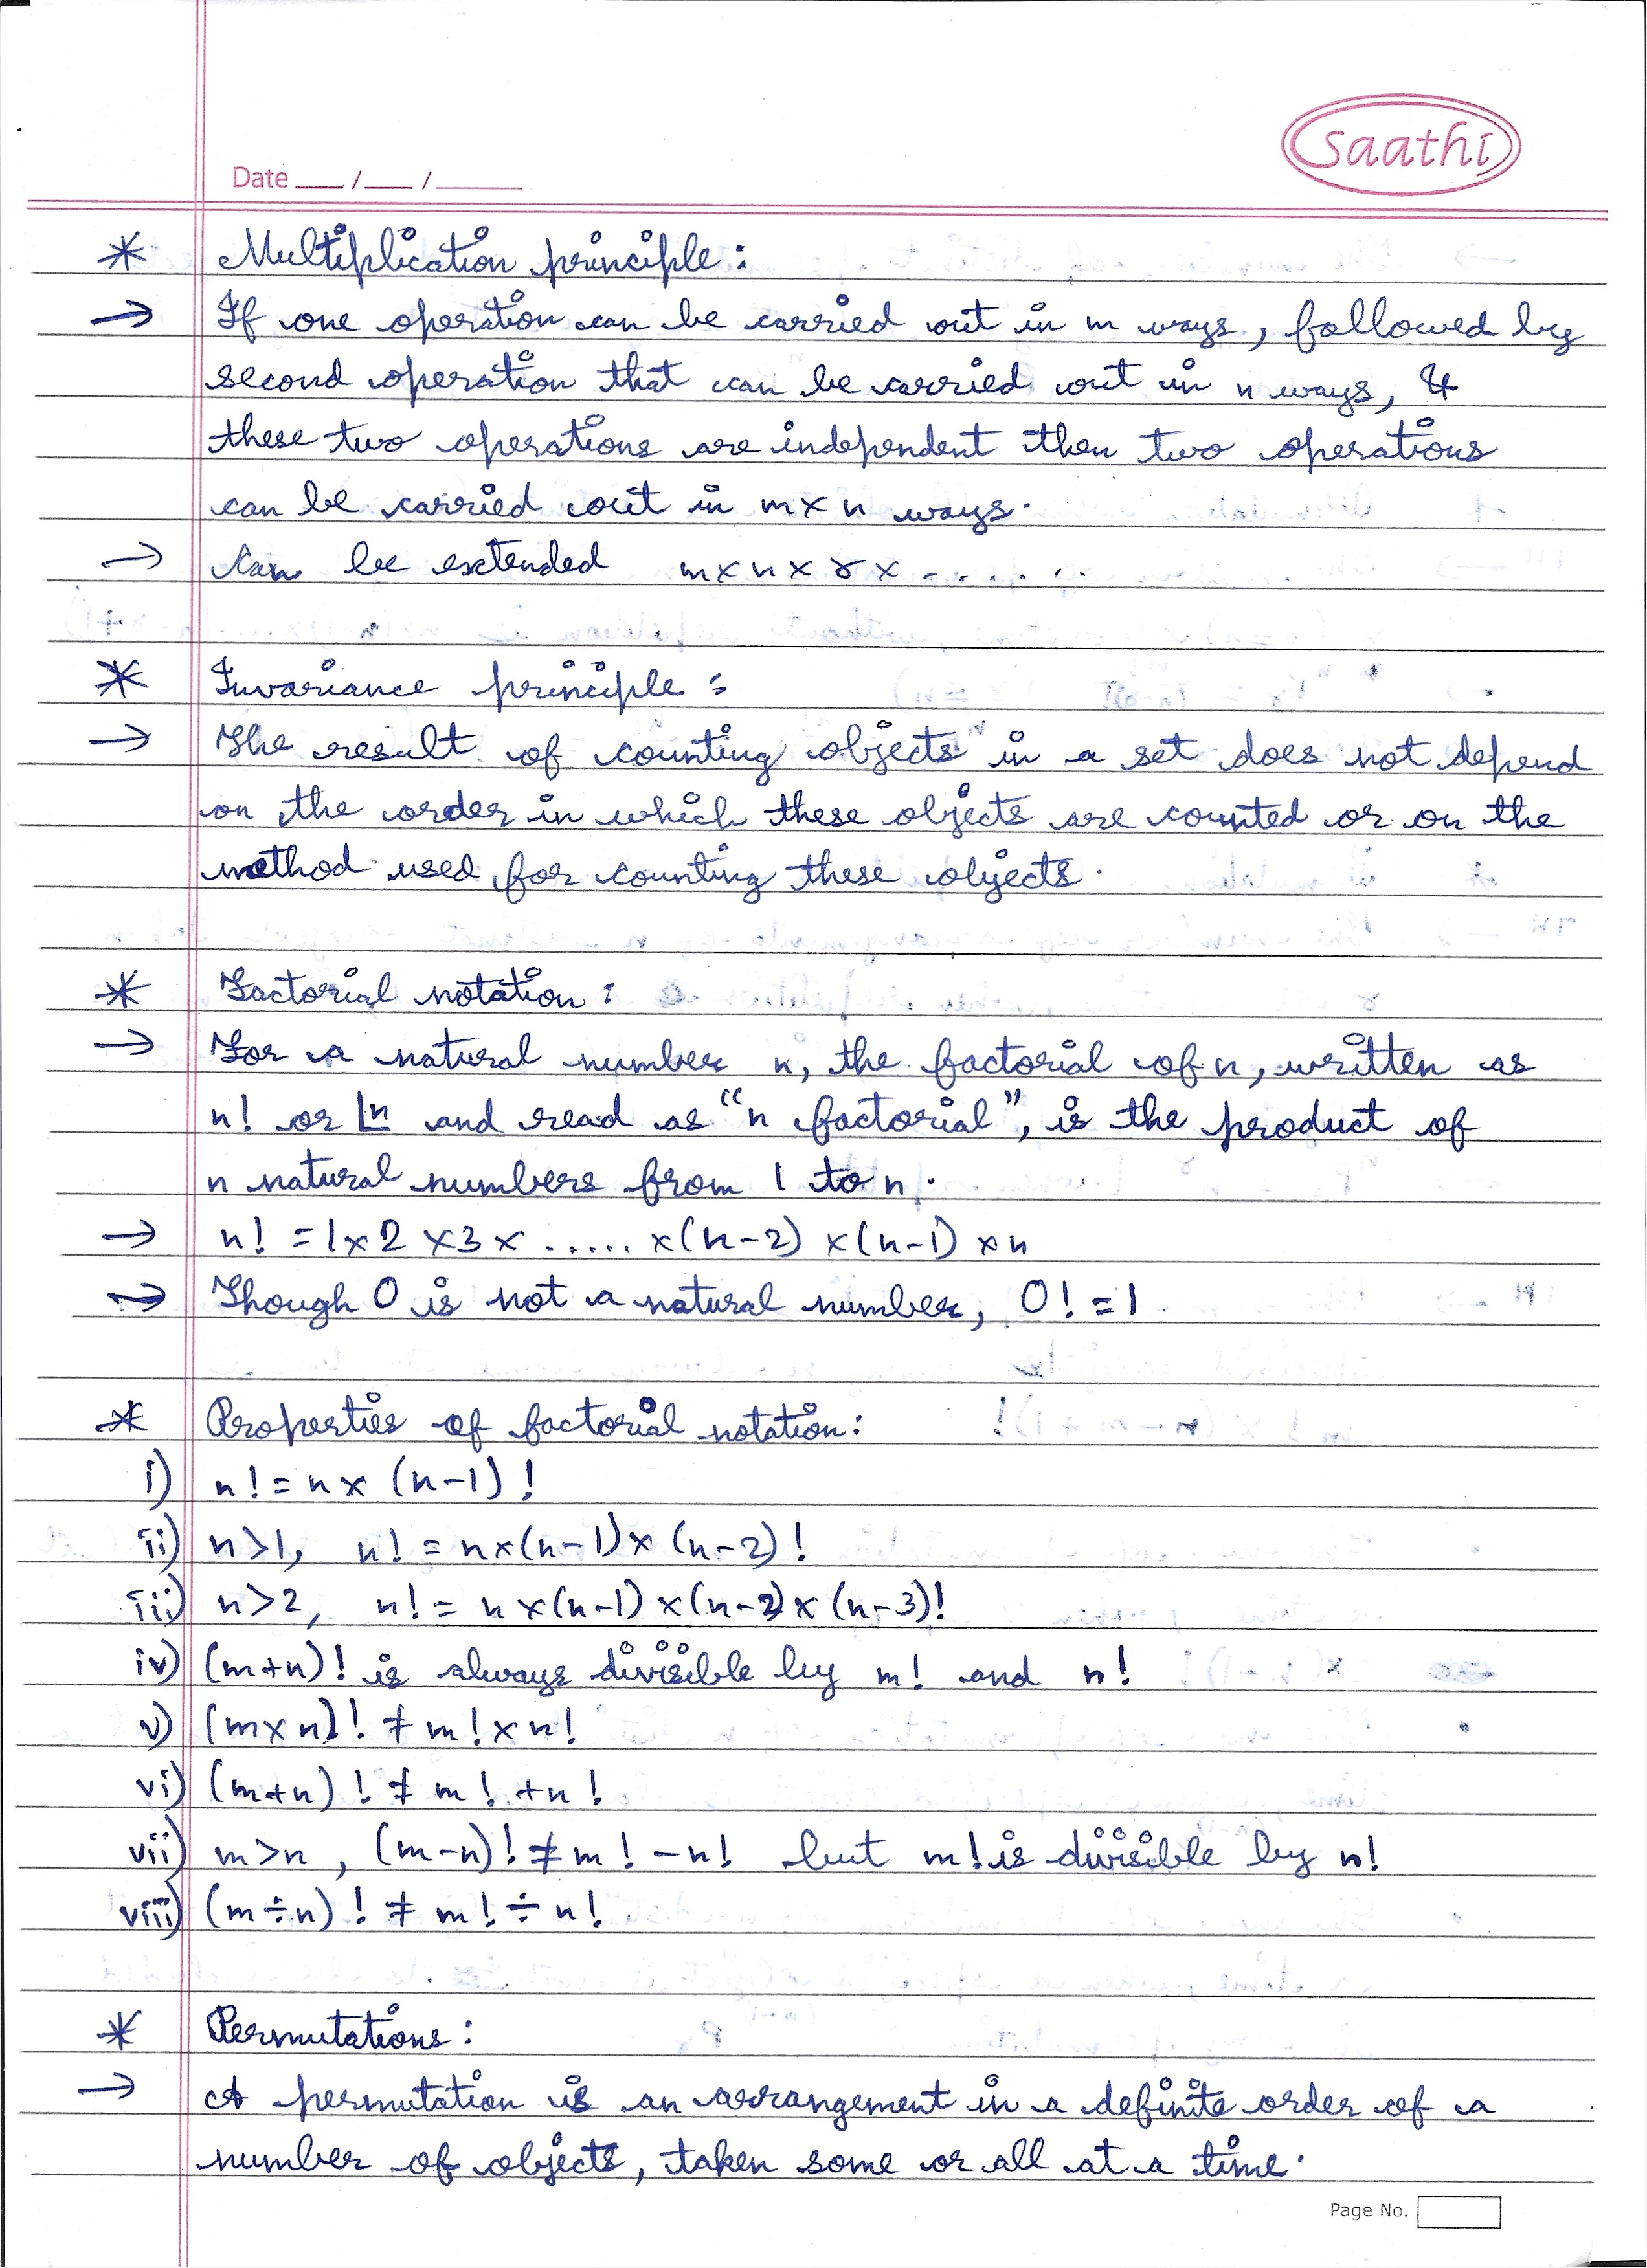 saathi
Date ___/___/______
* Multiplication principle :
→ If one operation can be carried out in m ways, followed by
second operation that can be carried out in n ways, &
these two operations are independent then two operations
can be carried out in m × n ways.
→ Can be extended m × n × r × - . . . . .
* Invariance principle :
→ The result of counting objects in a set does not depend
on the order in which these objects are counted or on the
method used for counting these objects.
* Factorial notation :
→ For a natural number n, the factorial of n, written as
n! or |n and read as "n factorial", is the product of
n natural numbers from 1 to n.
→ n! = 1 × 2 × 3 × ...... × (n-2) × (n-1) × n
→ Though 0 is not a natural number, 0! = 1
* Properties of factorial notation :
i) n! = n × (n-1)!
ii) n>1, n! = n×(n-1)×(n-2)!
iii) n>2, n! = n×(n-1)×(n-2)×(n-3)!
iv) (m+n)! is always divisible by m! and n!
v) (m×n)! ≠ m! × n!
vi) (m+n)! ≠ m! + n!
vii) m>n, (m-n)! ≠ m! - n! but m! is divisible by n!
viii) (m÷n)! ≠ m! ÷ n!
* Permutations :
→ A permutation is an arrangement in a definite order of a
number of objects, taken some or all at a time.
Page No.